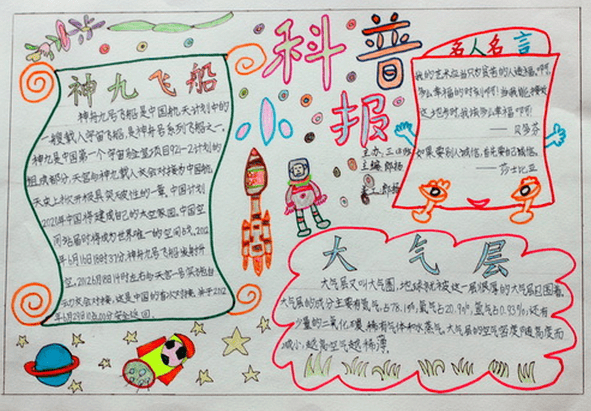 科普
小报
主办:三
主编:郎扬
美工:郎扬
神九飞船
神舟九号飞船是中国航天计划中的
一艘载人宇宙飞船,是神舟号系列飞船之一。
神九是中国第一个宇宙实验室项目921-2计划的
组成部分,天宫与神九载人交会对接为中国航
天史上掀开极具突破性的一章。中国计划
2020年中国将建成自己的太空家园,中国空
间站届时将成为世界唯一的空间站。2012
年6月16日18时37分,神舟九号飞船发射升
空。2012年6月18日14时左右与天宫一号
交会对接,这是中国的首次
年6月29日10点00分安全返回。
名人名言
我的艺术应当只为贫苦的人造福。啊,
多么幸福的时刻啊!当我能接近
这地步时,我该多么幸福啊!
——贝多芬
如果要别人诚信,自己要诚信。
——莎士比亚
大气层
大气层又叫大气圈,地球就被这一层很厚的大气层包围着。
大气层的成分主要有氮气,占78.1%;氧气占20.9%;氩气占0.93%;还有
少量的二氧化碳、稀有气体和水蒸气。大气层的空气密度随高度而
减小,越高空气越稀薄。